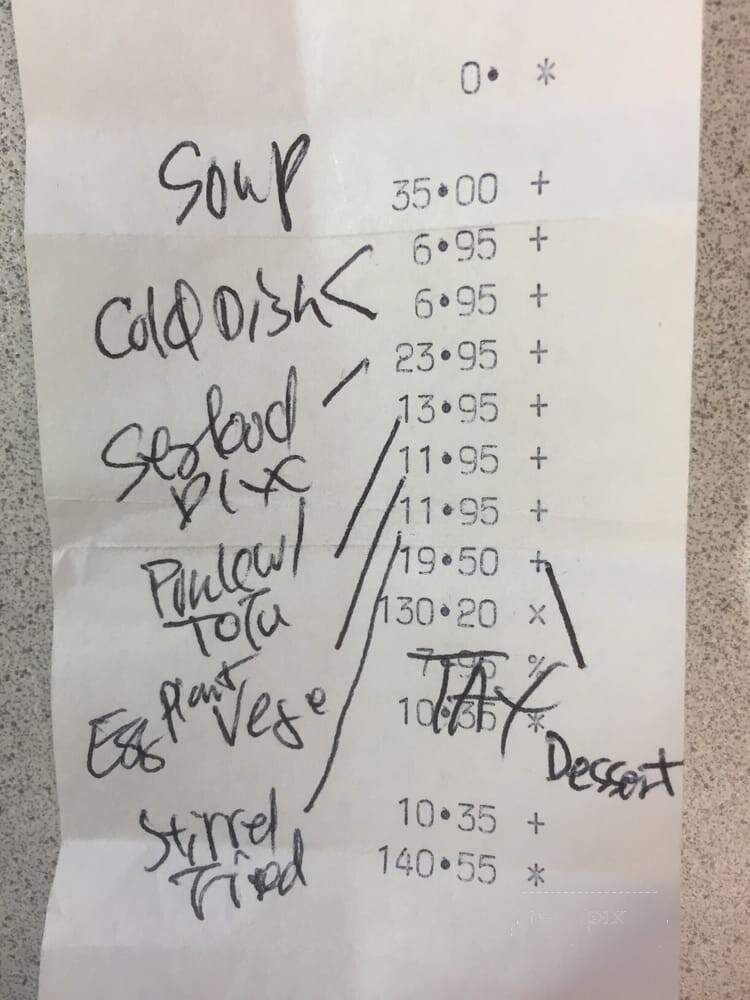 0. *
Soup 35.00 +
6.95 +
Cold Dish < 6.95 +
23.95 +
Seafood 13.95 +
11.95 +
11.95 +
19.50 +
Tofu 130.20 x
7.95 %
Egg Plant Vege TAX 10.35 *
Dessert
Stirred 10.35 +
Fried 140.55 *